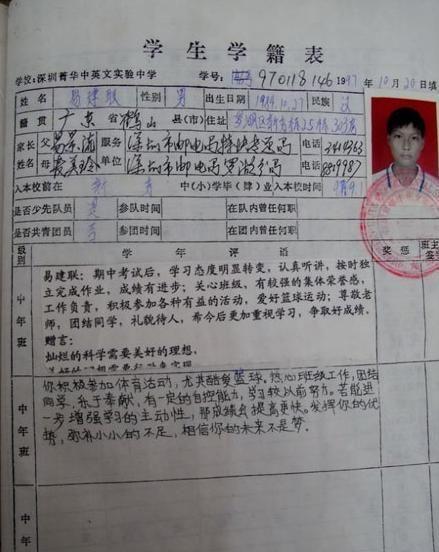 学生学籍表
学校:深圳菁华中英文实验中学 学号: 970118146 1997年10月20日填
姓名 易建联 性别 男 出生日期 1984.10.27 民族 汉
籍贯 广东省鹤山县(市) 住址
家长 父 易景流 服务 深圳市邮电局 电话
姓名 母 麦美玲 单位 深圳市邮电局罗湖分局 电话
入本校前在 中(小)学毕(肄)业 入本校时间
是否少先队员 参队时间 在队内曾任何职
是否共青团员 否 参团时间 在团内曾任何职
级别 学年评语 奖惩 班主任签章
中 年 班
易建联:期中考试后,学习态度明显转变,认真听讲,按时独
立完成作业,成绩有进步;关心班级,有较强的集体荣誉感,
工作负责,积极参加各种有益的活动,爱好篮球运动;尊敬老
师,团结同学,礼貌待人,希今后更加重视学习,争取好成绩.
赠言:
灿烂的科学需要美好的理想,
中 年 班
你积极参加体育活动,尤其酷爱篮球。热心班级工作,团结
同学,乐于奉献,有一定的自控能力,学习较以前努力。若能进
一步增强学习的主动性,那成绩会提高更快。发挥你的优
势,弥补小小的不足,相信你的未来不是梦.
中 年